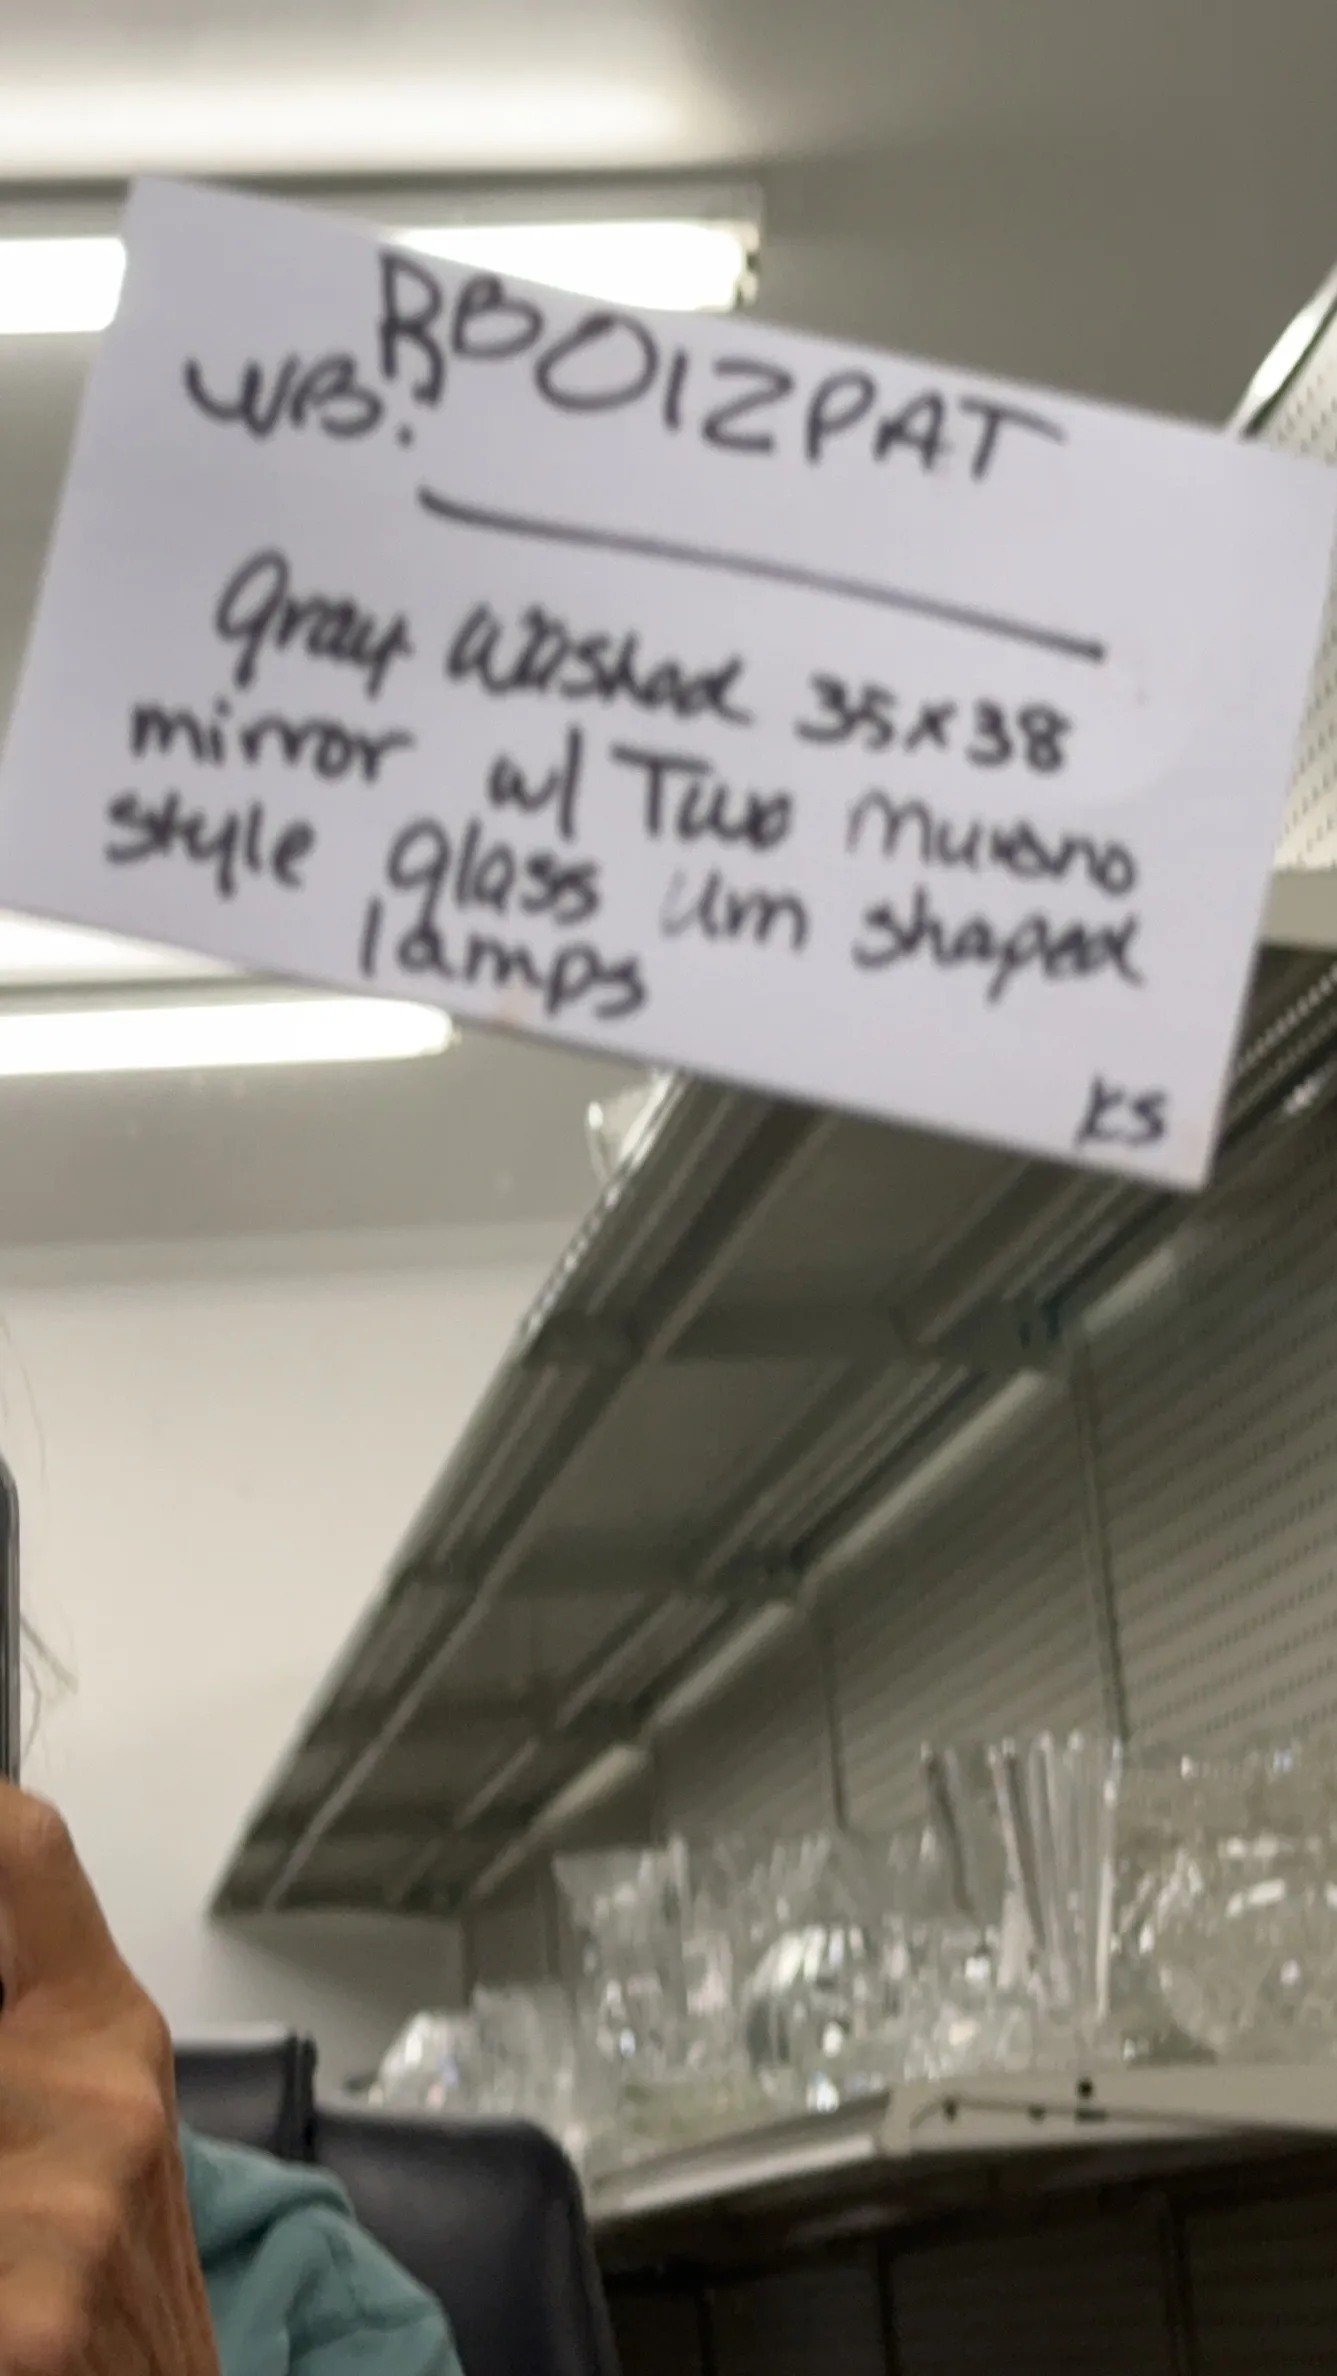 RBO12PAT
WB:
Gray Washed 35x38
mirror w/ Two Murano
style glass Urn shaped
lamps
KS